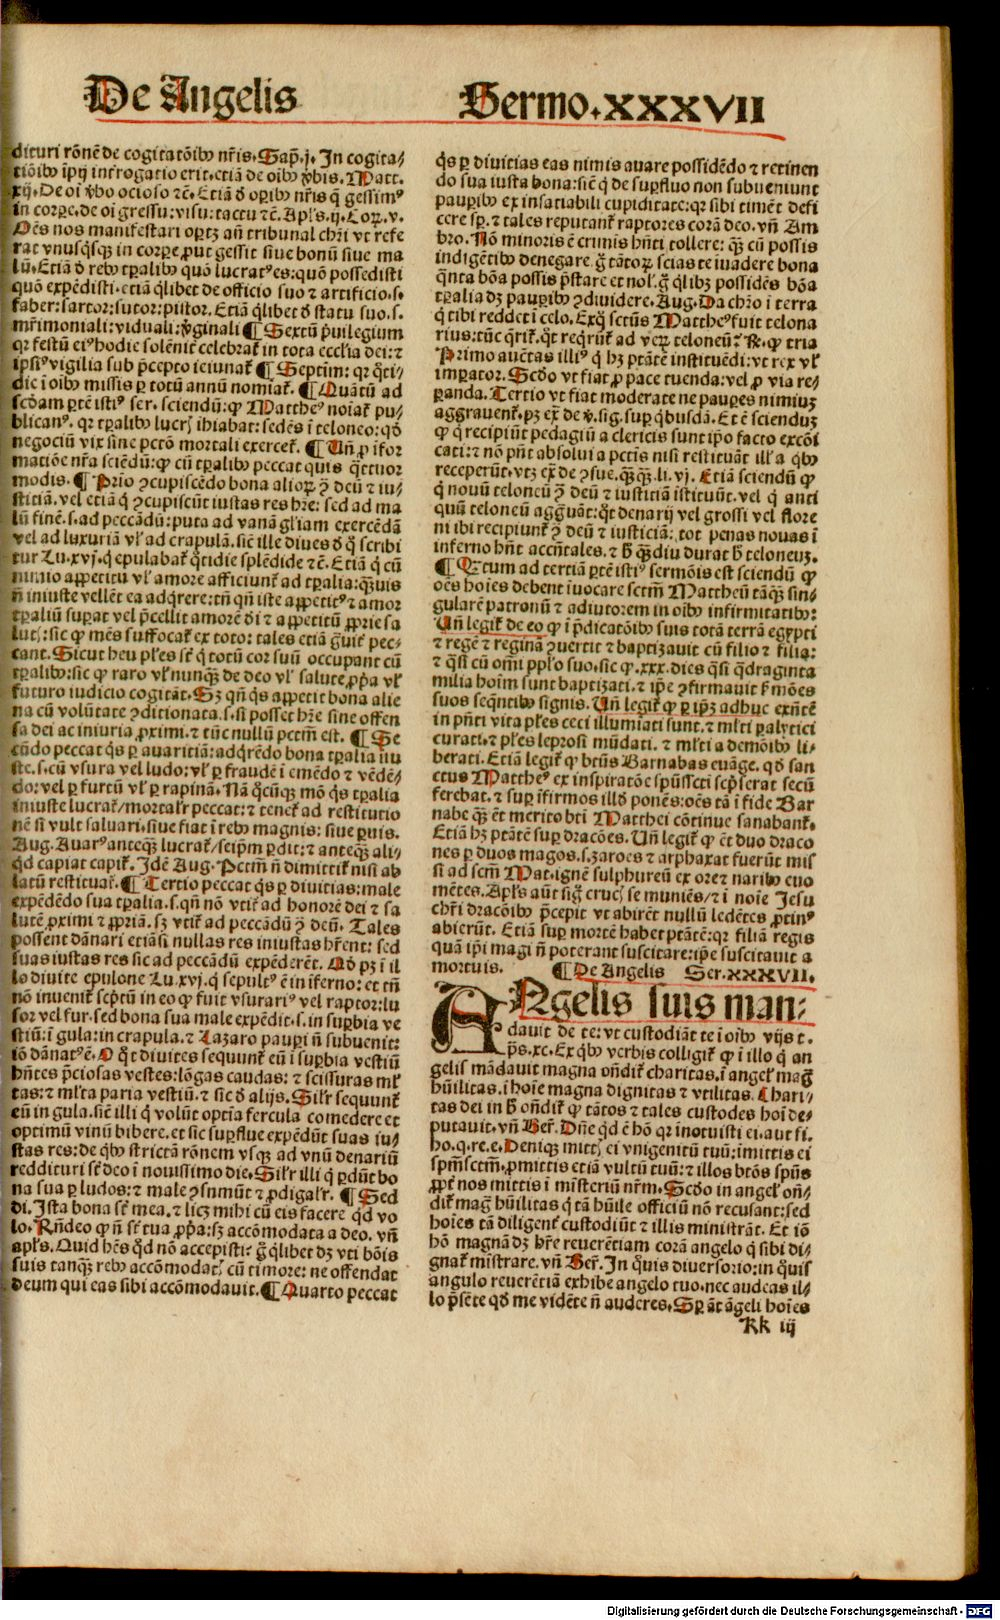 De Angelis
Sermo.XXXVII
dituri rōnē de cogitatōibꝰ nr̄is. Sap̄. j. In cogita/
tiōibꝰ īpij interrogatio erit. etiā de oibꝰ v̄bis. Matt.
xij. De oī v̄bo ocioso ⁊c̄. Etiā d̄ oꝑibꝰ nr̄is q̄ gessimꝰ
in corꝑe. de oī gressu: visu: tactu ⁊c̄. Apl's. ij. Coꝝ. v.
Oēs nos manifestari oportꝫ an̄ tribunal chr̄i vt refe
rat vnusq̄sqꝫ in corꝑe ꝓut gessit siue bonū siue ma
lū. Etiā d̄ rebꝰ tꝑalibꝰ quō lucratꝰ es: quō possedisti
quō expēdisti. etiā q̄libet de officio suo ⁊ artificio. s.
faber: sartor: sutor: pistor. Etiā q̄libet d̄ statu suo. s.
mr̄imoniali: viduali: v̄ginali ¶ Sextū p̄uilegium
qr festū eiꝰ hodie solēnit̄ celebrat̄ in tota ecclīa dei: ⁊
ipsiꝰ vigilia sub p̄cepto ieiunat̄ ¶ Septim̄: qr q̄ti/
die ī oibꝰ missis ꝑ totū annū nomiat̄. ¶ Quātū ad
scd̄am ꝑtē istiꝰ ser. sciendū: ꝙ Mattheꝰ noīat̄ pu/
blicanꝰ. qr tꝑalibꝰ lucr̄ ihiabat: sedēs ī teloneo: qd̄
negociū vix sine pctō mortali exercet̄. ¶ Un̄ ꝓ īfor
matiōe nr̄a sciēdū: ꝙ cū tꝑalibꝰ peccat quis q̄ttuor
modis. ¶ Prio ꝯcupiscēdo bona alioꝝ ꝯ̄ deū ⁊ iu/
sticiā. vel etiā q̄ ꝯcupiscūt iustas res hr̄e: sed ad ma
lū finē. s. ad peccādū: puta ad vanā gl'iam exercēdā
vel ad luxuriā vl' ad crapulā. sic̄ ille diues d̄ q̄ scribi
tur Lu. xvj. q̄ epulabat̄ q̄tidie splēdide ⁊c̄. Etiā q̄ cū
nimio appetitu vl' amore afficiunt̄ ad tꝑalia: q̄ꝫuis
n̄ iniuste vellēt ea adq̄rere: tn̄ qn̄ iste appetitꝰ ⁊ amor
tꝑaliū suꝑat vel p̄cellit amorē dī ⁊ appetitū ꝓprie sa
lut̄: sic ꝙ mēs suffocat̄ ex toto: tales etiā ḡuit̄ pec/
cant. Sicut heu pl'es st̄ q̄ totū cor suū occupant cū
tꝑalibꝰ: sic ꝙ raro vl' nunq̄ꝫ de deo vl' salute ꝓpͥa vl'
futuro iudicio cogitāt. Sꝫ qn̄ q̄s appetit bona alie
na cū volūtate ꝯditionata. s. si posset hr̄e sine offen
sa dei ac iniuria ꝓximi. ⁊ tūc nullū pctm̄ est. ¶ Se
cūdo peccat q̄s ꝑ auaritiā: adq̄rēdo bona tꝑalia iiu
ste. s. cū vsura vel ludo: vl' ꝑ fraudē ī emēdo ⁊ vēdē/
do: vel ꝑ furtū vl' ꝑ rapinā. Nā q̄cūqꝫ mō q̄s tꝑalia
iniuste lucrat̄/mortalr̄ peccat: ⁊ tenet̄ ad restitutio
nē si vult saluari. siue fiat ī rebꝰ magnis: siue ꝑuis.
Aug. Auarꝰ anteq̄ꝫ lucrat̄/seip̄m ꝑdit: ⁊ anteq̄ꝫ ali/
qd̄ capiat capit̄. Idē Aug. Pctm̄ n̄ dimittit̄ nisi ab
latū restituat̄. ¶ Tertio peccat q̄s ꝑ diuitias: male
expēdēdo sua tꝑalia. s. qn̄ nō vtit̄ ad honorē dei ⁊ sa
lutē ꝓximi ⁊ ꝓpriā. sꝫ vtit̄ ad peccādū ꝯ̄ deū. Tales
possent dānari etiāsi nullas res iniustas hr̄ent: sed
suas iustas res sic ad peccādū expēderēt. Qd̄ pꝫ ī il
lo diuite epulone Lu. xvj. q̄ sepultꝰ ē in īferno: et tn̄
nō inuenit̄ sc̄ptū in eo ꝙ fuit vsurariꝰ vel raptor: lu
sor vel fur. sed bona sua male expēdit. s. in suꝑbia ve
stiū: ī gula: in crapula. ⁊ Lazaro pauꝑi n̄ subuenit:
iō dānatꝰ ē. O q̄t diuites sequunt̄ eū ī suꝑbia vestiū
hn̄tes p̄ciosas vestes: lōgas caudas: ⁊ scissuras ml'
tas: ⁊ ml'ta paria vestiū. ⁊ sic d̄ alijs. Silr̄ sequunt̄
eū in gula. sic̄ illi q̄ volūt optīa fercula comedere et
optimū vinū bibere. et sic suꝑflue expēdūt suas iu/
stas res: de qbꝰ strictā rōnem vsqꝫ ad vnū denariū
reddituri st̄ deo ī nouissimo die. Silr̄ illi q̄ ꝑdūt bo
na sua ꝑ ludos: ⁊ male ꝯsumūt ⁊ ꝓdigalr̄. ¶ Sed
di. Ista bona st̄ mea. ⁊ licꝫ mihi cū eis facere qd̄ vo
lo. Rn̄deo ꝙ n̄ st̄ tua ꝓpͥa: sꝫ accōmodata a deo. vn̄
apl's. Quid hēs qd̄ nō accepisti? ḡ q̄libet dꝫ vti bōis
suis tanqꝫ rebꝰ accōmodat̄ cū timore: ne offendat
deum qui eas sibi accōmodauit. ¶ Quarto peccat
q̄s ꝑ diuitias eas nimis auare possidēdo ⁊ retinen
do sua iusta bona: sic̄ q̄ de suꝑfluo non subueniunt
pauꝑibꝰ ex insatiabili cupiditate: qr sibi timēt defi
cere sꝑ. ⁊ tales reputant̄ raptores corā deo. vn̄ Am
bro. Nō minoris ē crimis hn̄ti tollere: q̄ꝫ cū possis
indigētibꝰ denegare. ḡ tātoꝝ scias te iuadere bona
q̄nta bōa possis p̄stare et nol'. ḡ q̄libꝫ possidēs bōa
tꝑalia dꝫ pauꝑibꝰ ꝯdiuidere. Aug. Da chr̄o ī terra
q̄ tibi reddet ī celo. Exq̄ sctūs Mattheꝰ fuit telona
rius: tūc q̄rit̄. q̄t reqrūt̄ ad veꝝ teloneū? R. ꝙ tria
Primo auctas illiꝰ q̄ hꝫ ptātē instituēdi: vt rex vl'
imꝑator. Scd̄o vt fiat ꝓ pace tuenda: vel ꝓ via re/
ꝑanda. Tertio vt fiat moderate ne pauꝑes nimiuꝫ
aggrauent̄. pꝫ ex̄ de v̄. sig. suꝑ q̄busdā. Et ē sciendū
ꝙ q̄ recipiūt pedagiū a clericis sunt ip̄o facto excōi
cati: ⁊ nō pn̄t absolui a pctis nisi restituāt illa a qbꝰ
receperūt. vtꝫ ex̄ de ꝯsue. q̄ꝫq̄ꝫ. li. vj. Etiā sciendū ꝙ
q̄ nouū teloneū ꝯ̄ deū ⁊ iusticiā īstituūt. vel q̄ anti
quū teloneū aggrauāt: q̄t denarij vel grossi vel flore
ni ibi recipiunt̄ ꝯ̄ deū ⁊ iusticiā: tot penas nouas ī
inferno hn̄t accn̄tales. ⁊ h̄ q̄ꝫdiu durat h̄ teloneuꝫ.
¶ Q̄tum ad tertiā ꝑtē istiꝰ sermōis est sciendū ꝙ
oēs hoīes debent īuocare sctm̄ Mattheū tāq̄ꝫ sin/
gularē patronū ⁊ adiutorem in oibꝰ infirmitatibꝰ:
Un̄ legit̄ de eo ꝙ ī p̄dicatōibꝰ suis totā terrā egypti
⁊ regē ⁊ reginā ꝯuertit ⁊ baptizauit cū filio ⁊ filia:
⁊ q̄si cū om̄i pp̄lo suo. sic ꝙ. xxx. dies q̄si q̄draginta
milia hoim̄ sunt baptizati. ⁊ ip̄e ꝯfirmauit s̄mōes
suos seq̄ntibꝰ signis. Un̄ legit̄ ꝙ ꝑ ip̄ꝫ adhuc exn̄tē
in pn̄ti vita pl'es ceci illumiati sunt. ⁊ ml'ti ꝑalytici
curati. ⁊ pl'es leprosi mūdati. ⁊ ml'ti a demōibꝰ li/
berati. Etiā legit̄ ꝙ btūs Barnabas euāge. qd̄ san
ctus Mattheꝰ ex inspiratōe spūssctī sc̄pserat secū
ferebat. ⁊ suꝑ īfirmos illd̄ ponēs: oēs tā ī fide Bar
nabe q̄ꝫ ēt merito btī Matthei cōtinue sanabant̄.
Etiā hꝫ ptātē suꝑ dracōes. Un̄ legit̄ ꝙ ēt duo draco
nes ꝑ duos magos. s. zaroes ⁊ arphaxat fuerūt mis
si ad sctm̄ Mat. ignē sulphureū ex ore ⁊ naribꝰ euo
mētes. Apl's aūt siḡ cruc̄ se muniēs/⁊ ī noīe Jesu
chr̄i dracōibꝰ p̄cepit vt abirēt nullū ledētes ꝓtinꝰ
abierūt. Etiā suꝑ mortē habet ptātē: qr filiā regis
quā ipī magi n̄ poterant suscitare: ip̄e suscitauit a
mortuis. ¶ De Angelis Ser. XXXVII.
ANgelis suis man:
dauit de te: vt custodiāt te ī oibꝰ vijs t.
ps̄. xc. Ex qbꝰ verbis colligit̄ ꝙ ī illo q̄ an
gelis mādauit magna on̄dit̄ charitas. ī angel' maḡ
hūilitas. ī hoīe magna dignitas ⁊ vtilitas. Chari/
tas dei in h̄ on̄dit̄ ꝙ tātos ⁊ tales custodes hoī de/
putauit. vn̄ Ber̄. Dn̄e qd̄ ē hō qr īnotuisti ei. aut fi.
ho. q. re. e. Deniqꝫ mitt̄ ei vnigenitū tuū: īmittis ei
spm̄sctm̄. ꝓmittis etiā vultū tuū: ⁊ illos btōs spūs
ꝓpt̄ nos mittis ī misteriū nr̄m. Scd̄o in angel' on̄/
dit̄ maḡ hūilitas q̄ tā hūile officiū nō recusant: sed
hoīes tā diligent̄ custodiūt ⁊ illis ministrāt. Et iō
hō magnā dꝫ hr̄e reuerētiam corā angelo q̄ sibi di/
gnat̄ mīstrare. vn̄ Ber̄. In q̄uis diuersorio: in q̄uis
angulo reuerētiā exhibe angelo tuo. nec audeas il/
lo p̄sēte qd̄ me vidēte n̄ auderes. Sꝑ āt āgeli hoīes
kk iij
Digitalisierung gefördert durch die Deutsche Forschungsgemeinschaft - DFG